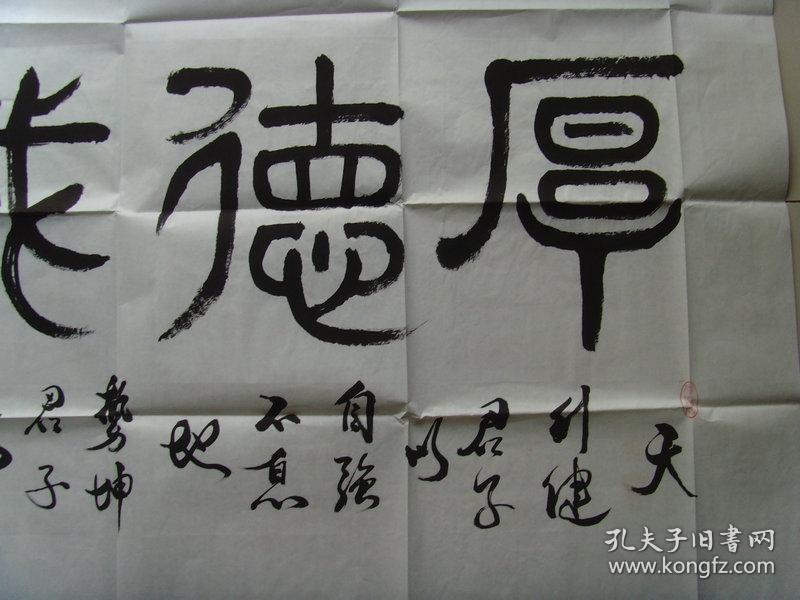 厚德
天
行健
君子
以
自強
不息
地
勢坤
君子
孔夫子旧书网
www.kongfz.com